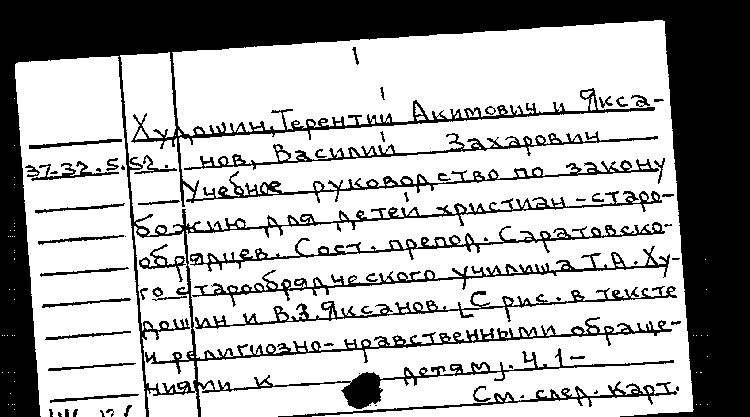 Худошин, Терентий Акимович и Якса-
37-32.5.52. нов, Василий Захарович
Учебное руководство по закону
божию для детей христиан-старо-
обрядцев. Сост. препод. Саратовско-
го старообрядческого училища Т.А. Ху-
дошин и В.З. Яксанов. [С рис. в тексте
и религиозно-нравственными обраще-
ниями к детям]. Ч.1-
См. след. карт.